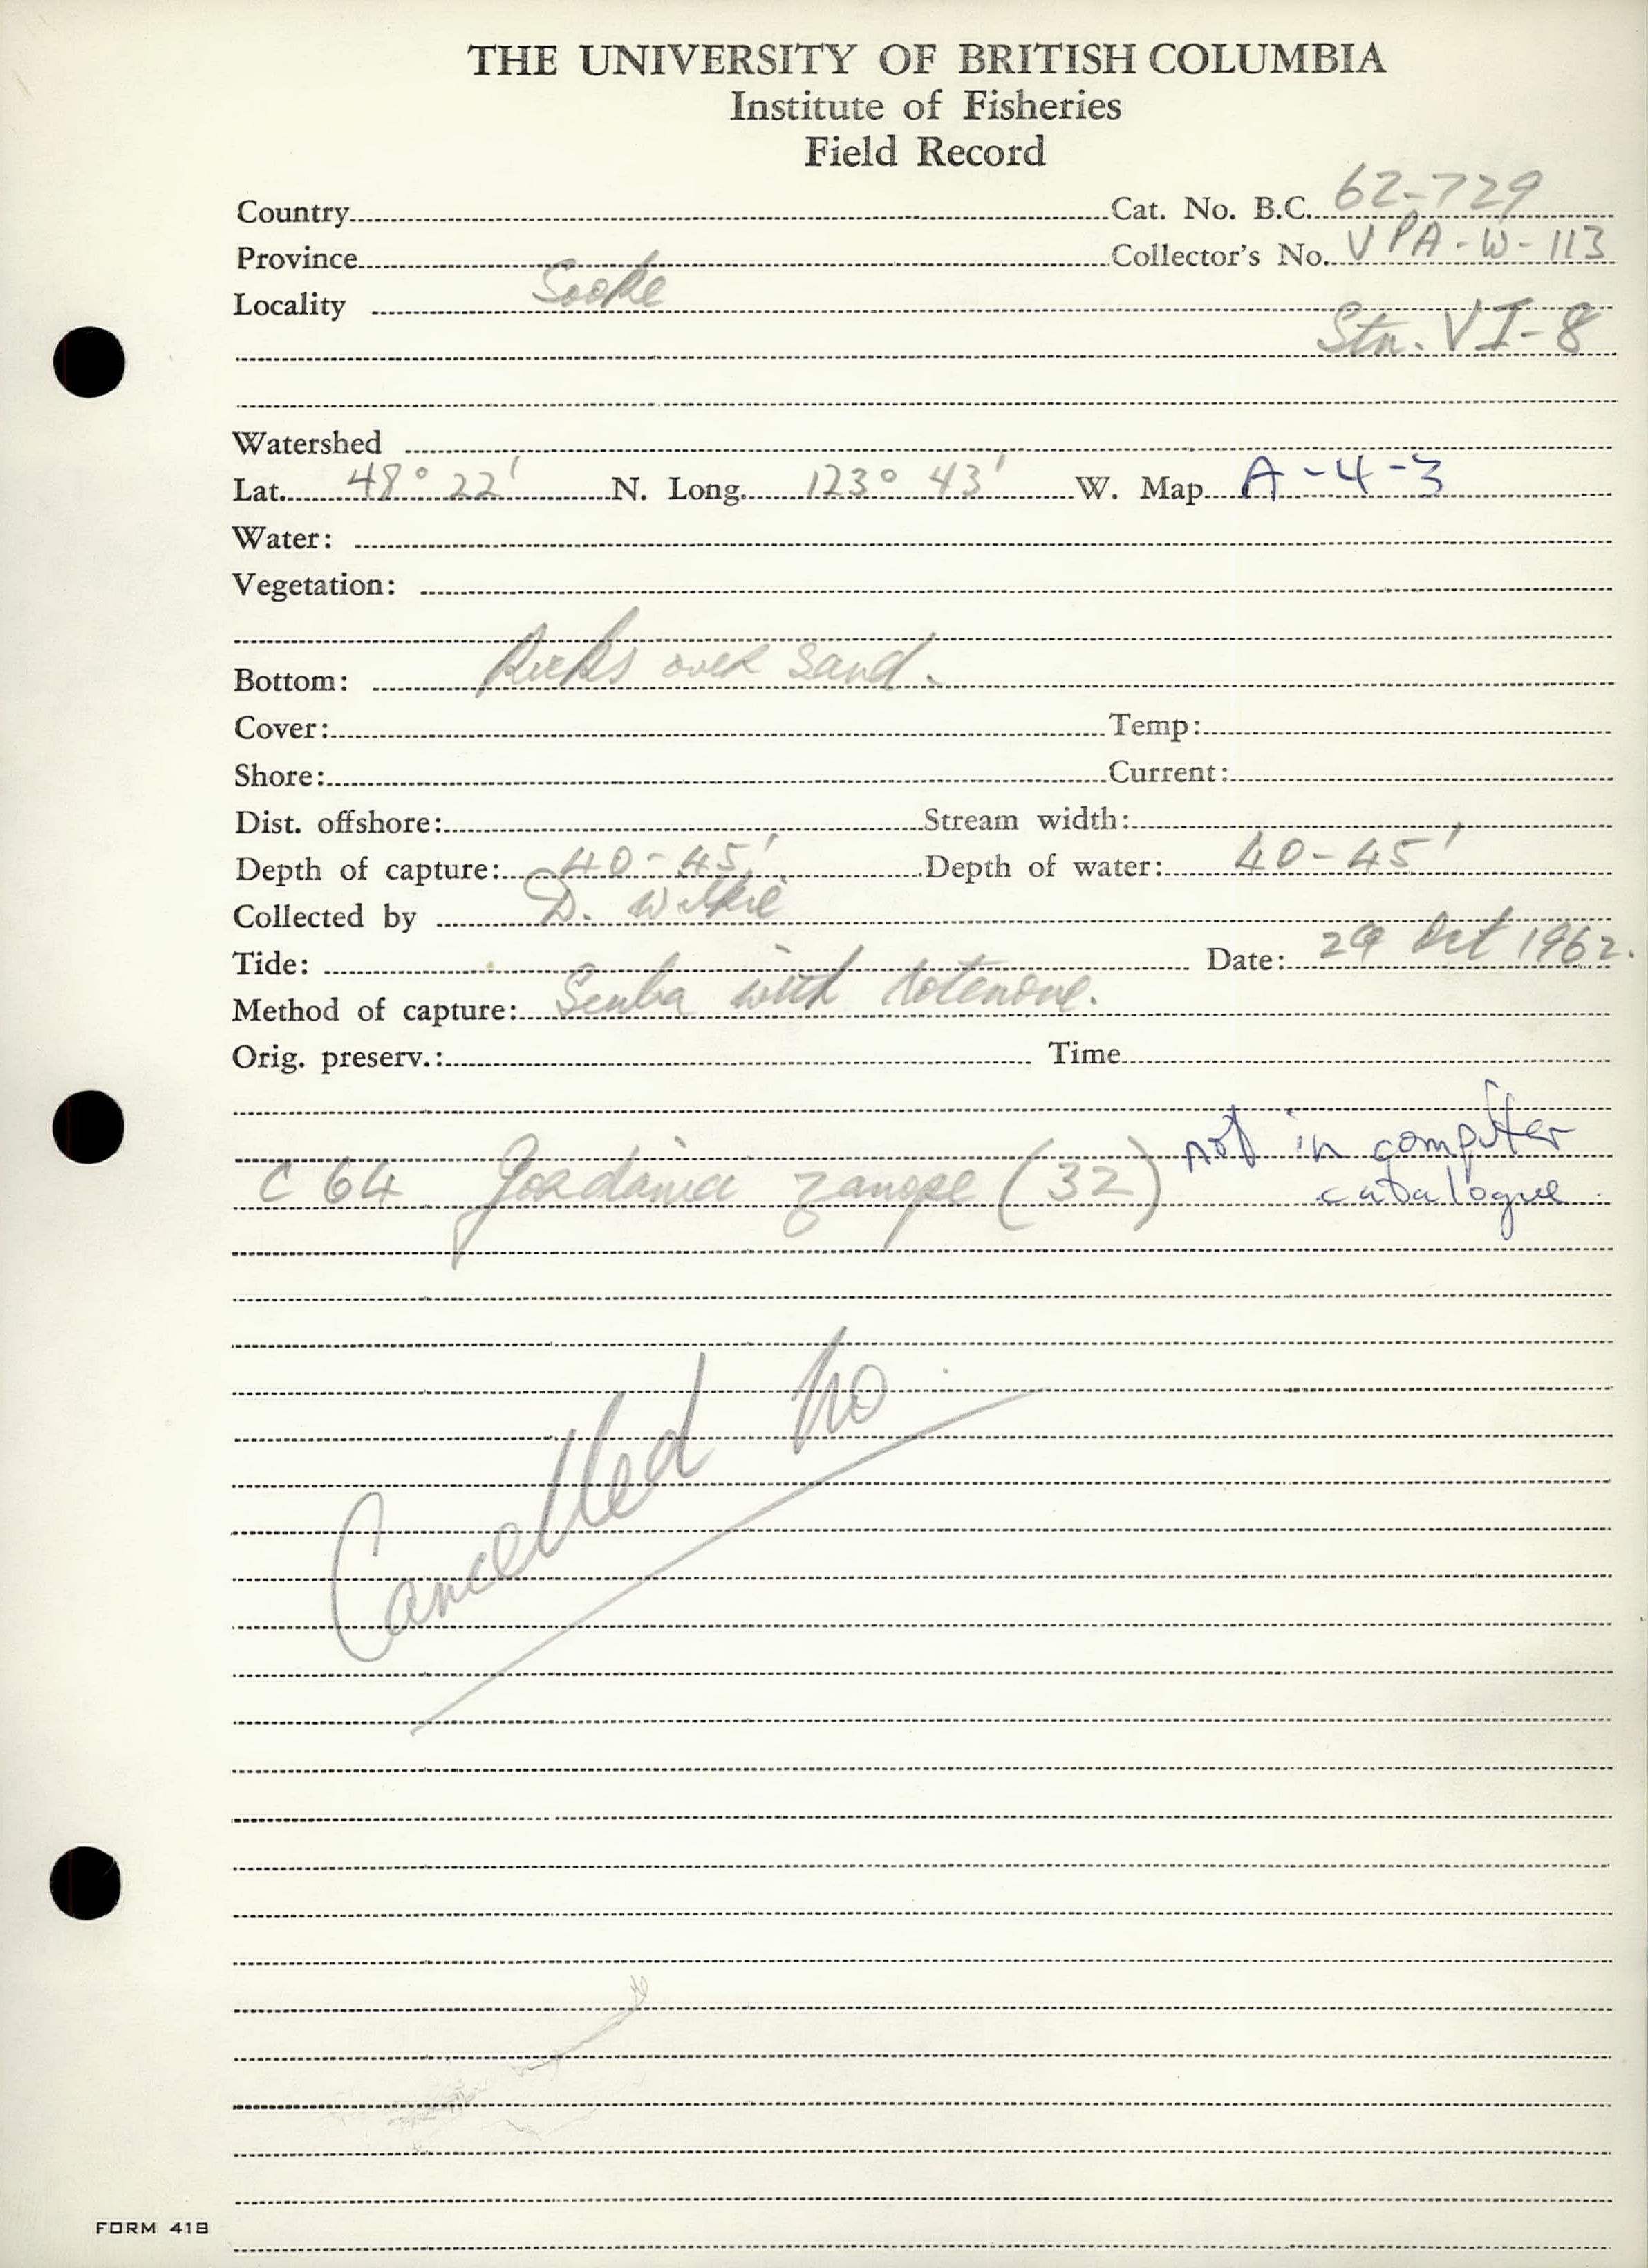 THE UNIVERSITY OF BRITISH COLUMBIA
Institute of Fisheries
Field Record
Country Cat. No. B.C. 62-729
Province Collector's No. VPA-W-113
Locality Sooke
Stn. VI-8
Watershed
Lat. 48° 22' N. Long. 123° 43' W. Map A-4-3
Water:
Vegetation:
Bottom: Rocks over sand.
Cover: Temp:
Shore: Current:
Dist. offshore: Stream width:
Depth of capture: 40-45' Depth of water: 40-45'
Collected by D. Wilkie
Tide: Date: 29 Oct 1962.
Method of capture: Scuba with rotenone.
Orig. preserv.: Time
C 64 Jordania zonope (32) not in computer
catalogue
Cancelled No
FORM 41B